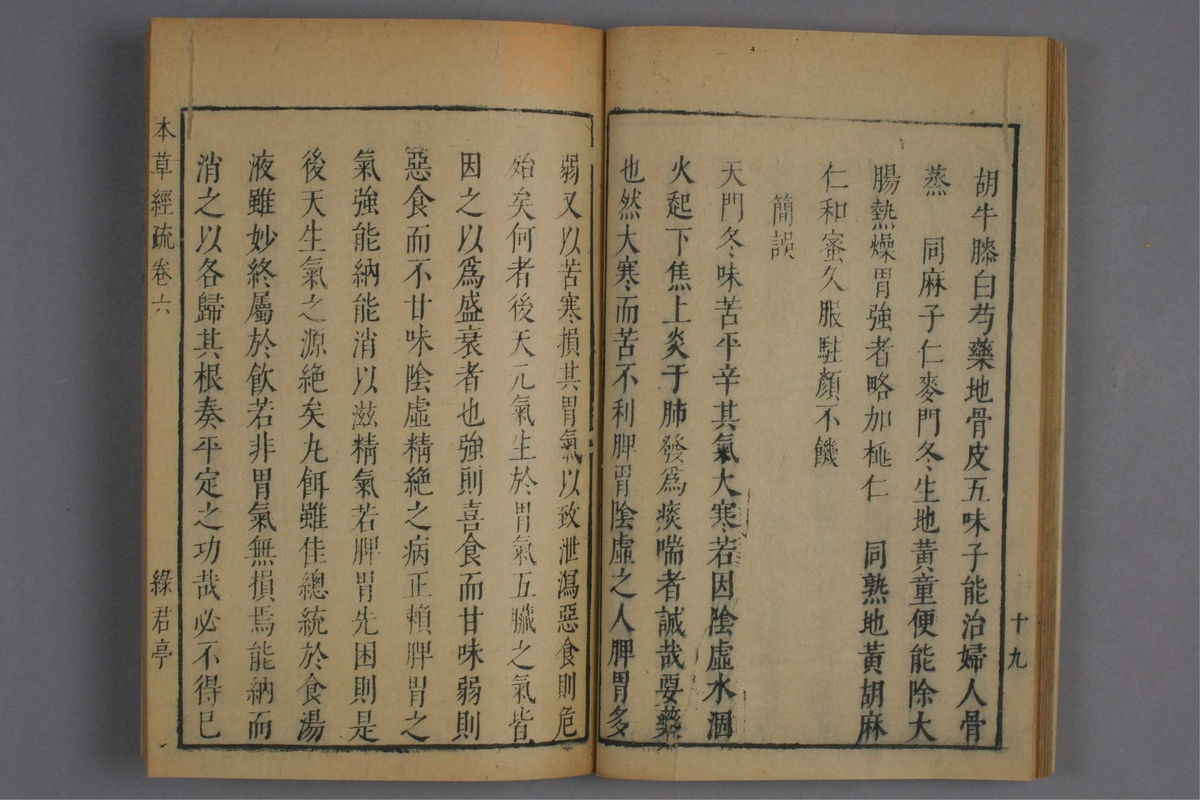 十九
胡牛膝白芍藥地骨皮五味子能治婦人骨
蒸　同麻子仁麥門冬生地黃童便能除大
腸熱燥胃強者略加桃仁　同熟地黃胡麻
仁和蜜久服駐顏不饑
簡誤
天門冬味苦平辛其氣大寒若因陰虛水涸
火起下焦上炎于肺發爲痰喘者誠哉要藥
也然大寒而苦不利脾胃陰虛之人脾胃多
弱又以苦寒損其胃氣以致泄瀉惡食則危
殆矣何者後天元氣生於胃氣五臟之氣皆
因之以爲盛衰者也強則喜食而甘味弱則
惡食而不甘味陰虛精絶之病正賴脾胃之
氣強能納能消以滋精氣若脾胃先困則是
後天生氣之源絶矣丸餌雖佳總統於食湯
液雖妙終屬於飲若非胃氣無損焉能納而
消之以各歸其根奏平定之功哉必不得已
本草經疏卷六
綠君亭